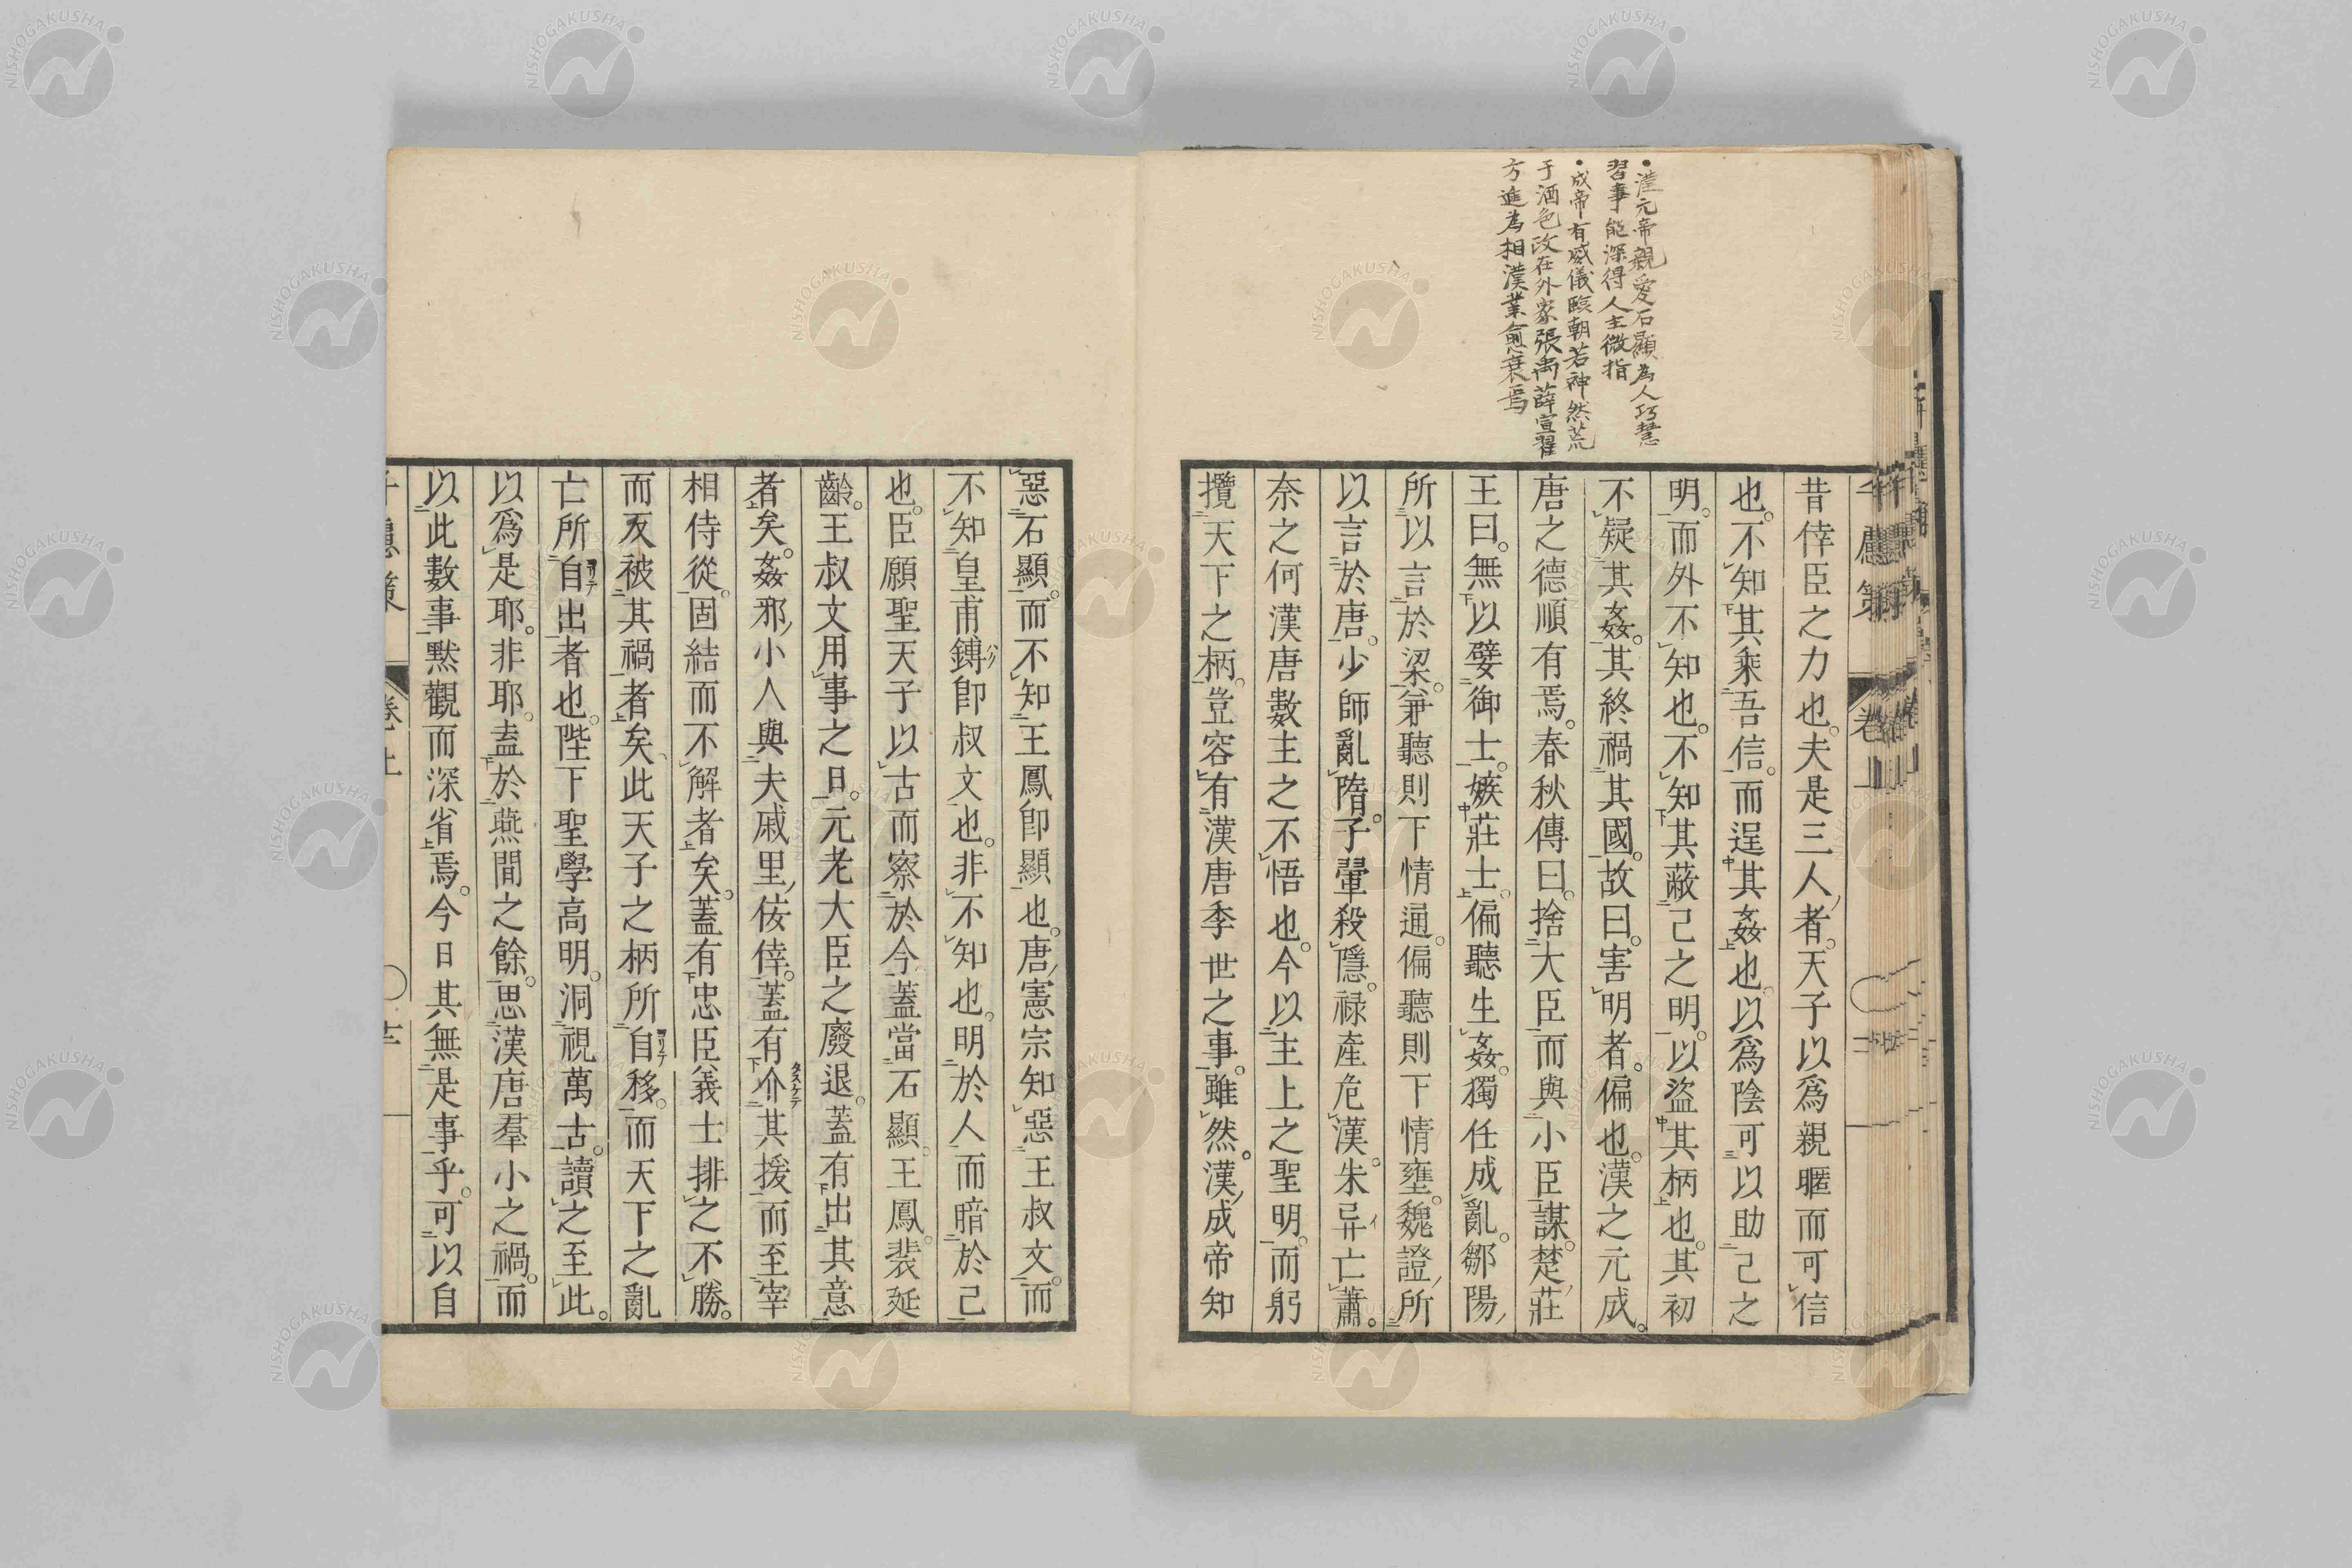 ・漢元帝親愛石顯為人巧慧
習事能深得人主微指
・成帝有威儀臨朝若神然荒
于酒色政在外家張禹薛宣翟
方進為相漢業愈衰焉
千慮策 卷上
昔倖臣之力也。夫是三人者。天子以爲親暱而可信
也。不知其乘吾信。而逞其姦也。以爲陰可以助己之
明。而外不知也。不知其蔽己之明。以盜其柄也。其初
不疑其姦。其終禍其國。故曰。害明者。偏也。漢之元成。
唐之德順有焉。春秋傳曰。捨大臣而與小臣謀。楚莊
王曰。無以嬖御士。嫉莊士。偏聽生姦。獨任成亂。鄒陽
所以言於梁。兼聽則下情通。偏聽則下情壅。魏證所
以言於唐。少師亂隋。子翬殺隱。祿產危漢。朱异亡蕭。
奈之何漢唐數主之不悟也。今以主上之聖明。而躬
攬天下之柄。豈容有漢唐季世之事。雖然。漢成帝知
惡石顯。而不知王鳳卽顯也。唐憲宗知惡王叔文。而
不知皇甫鎛卽叔文也。非不知也。明於人而暗於己
也。臣願聖天子以古而察於今。蓋當石顯。王鳳。裴延
齡。王叔文用事之日。元老大臣之廢退。蓋有出其意
者矣。姦邪小人與夫戚里侫倖。蓋有介其援而至宰
相侍從。固結而不解者矣。蓋有忠臣義士排之不勝。
而反被其禍者矣。此天子之柄所自移。而天下之亂
亡所自出者也。陛下聖學高明。洞視萬古。讀之至此。
以爲是耶。非耶。盍於燕閒之餘。思漢唐羣小之禍。而
以此數事默觀而深省焉。今日其無是事乎。可以自
千慮策 卷上
NISHOGAKUSHA